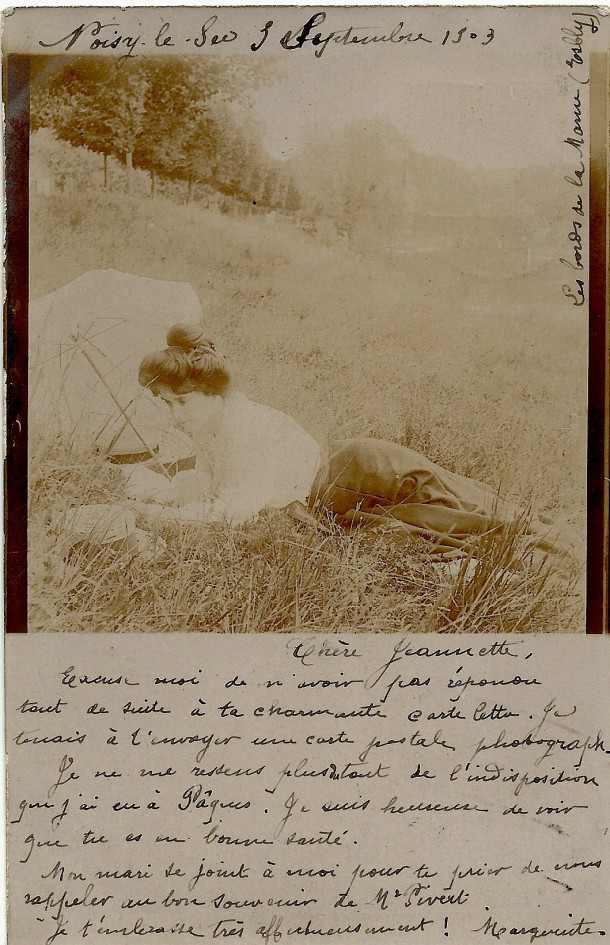 Noisy-le-Sec 3 Septembre 1903
Les bords de la Marne (Esbly)
Chère Jeannette,
Excuse moi de n'avoir pas répondu
tout de suite à ta charmante carte lettre. Je
tenais à t'envoyer une carte postale photograph.
Je ne me ressens plus du tout de l'indisposition
que j'ai eu à Pâques. Je suis heureuse de voir
que tu es en bonne santé.
Mon mari se joint à moi pour te prier de nous
rappeler au bon souvenir de Mr Pivert
Je t'embrasse très affectueusement! Marguerite-